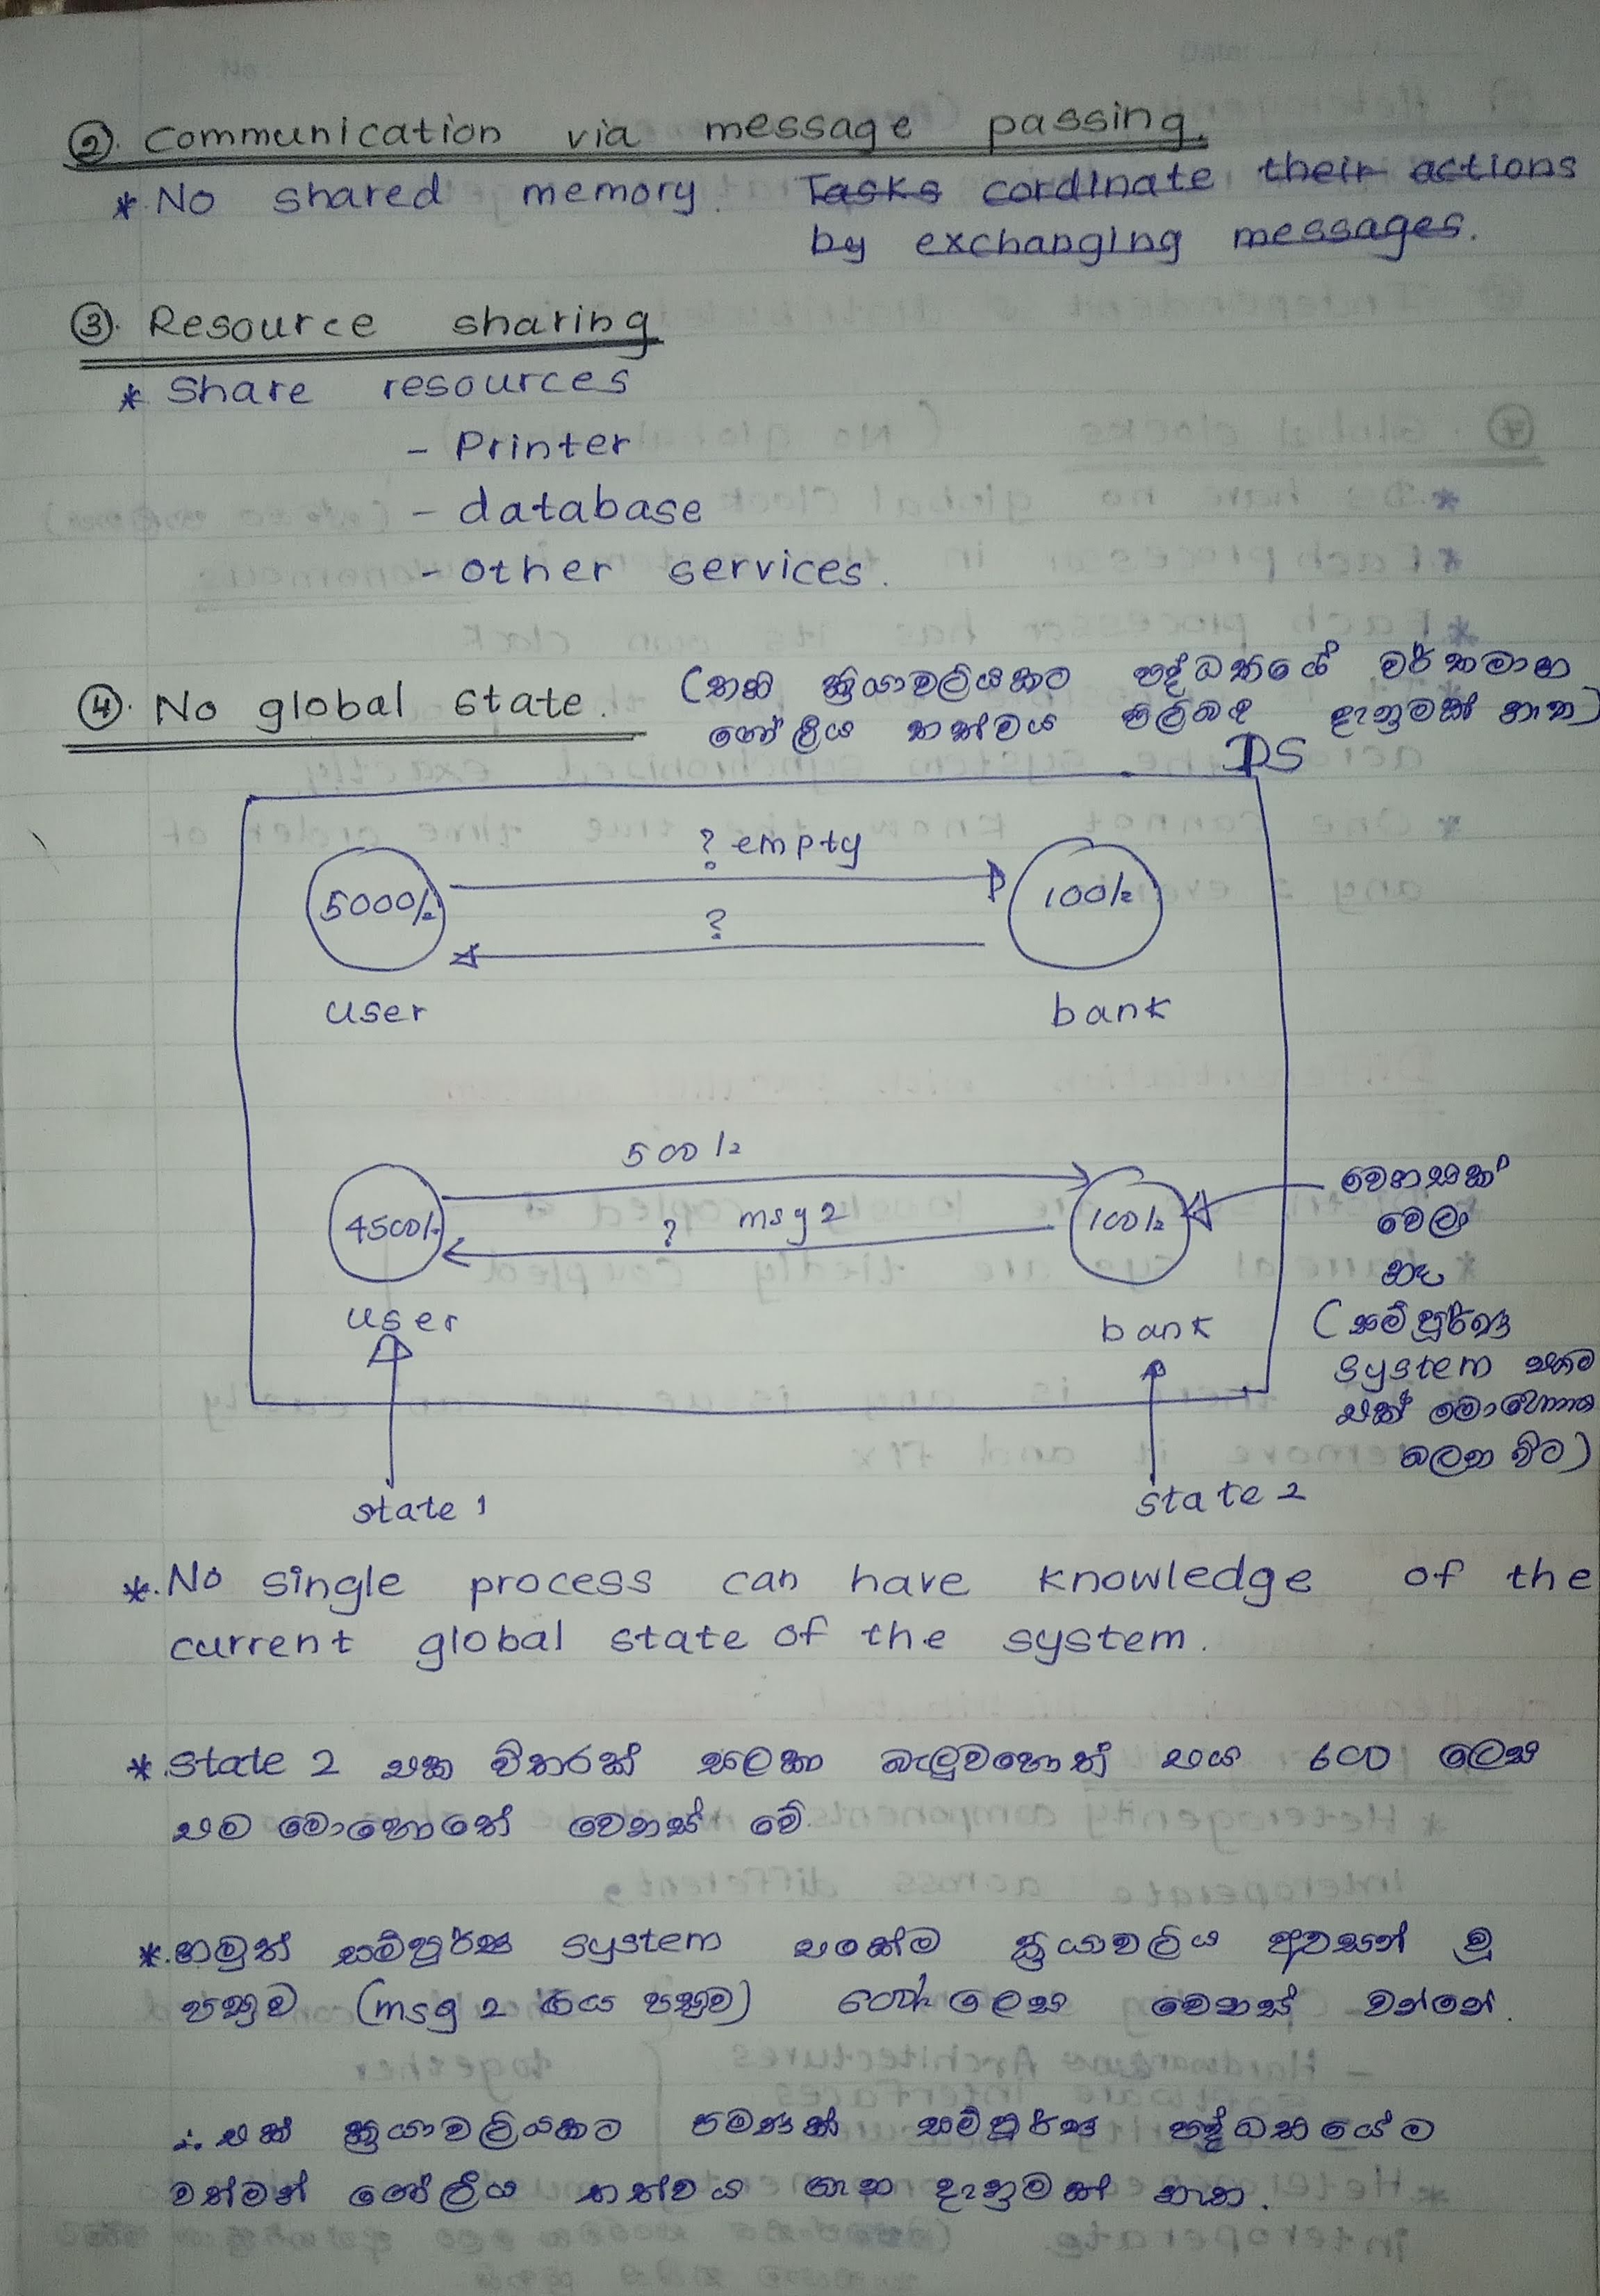 ②. Communication via message passing.
* No shared memory. Tasks cordinate their actions
by exchanging messages.
③. Resource sharing
* Share resources
- Printer
- database
- other services.
④. No global state. (තනි ක්‍රියාවලියකට පද්ධතියේ වර්තමාන
ගෝලීය තත්වය පිලිබඳ දැනුමක් නැත)
DS
? empty
5000/=
100/=
?
user
bank
500/=
4500/=
? msg 2
100/=
වෙනසක්
වෙලා
නෑ
(සම්පූර්ණ
system එකම
එක් මොහොතක
බලන විට)
user
bank
state 1
state 2
*. No single process can have knowledge of the
current global state of the system.
* state 2 එක විතරක් සලකා බැලුවහොත් එය 600 ලෙස
එම මොහොතේ වෙනස් වේ.
*. නමුත් සම්පූර්ණ system එකේම ක්‍රියාවලිය අවසන් වූ
පසුව (msg 2 ගිය පසුව) 600/= ලෙස වෙනස් වන්නේ.
∴ එක් ක්‍රියාවලියකට පමණක් සම්පූර්ණ පද්ධතියේම
වත්මන් ගෝලීය තත්වය ගැන දැනුමක් නැත.